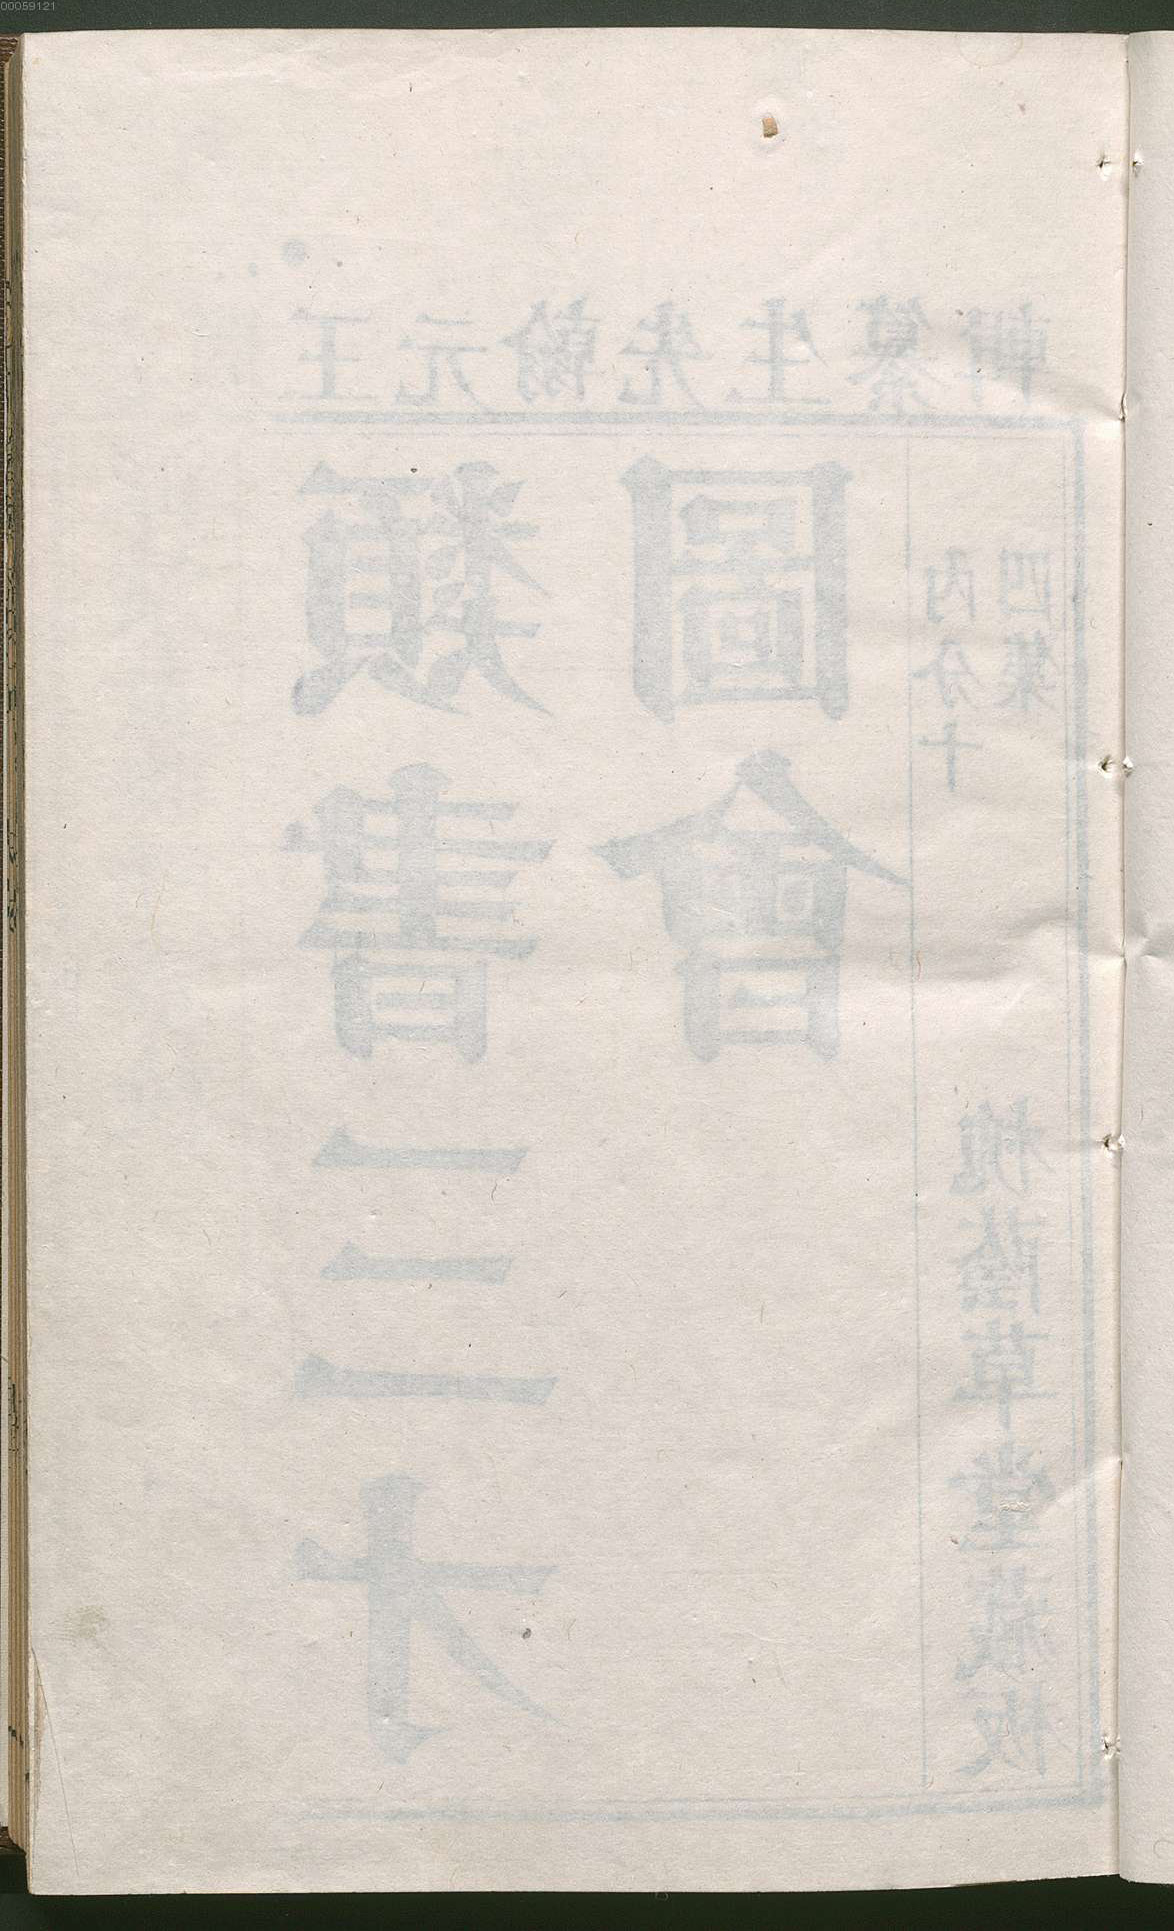 00059121
王元翰先生纂輯
類書三才
圖會
內分十
四集
槐蔭草堂藏板